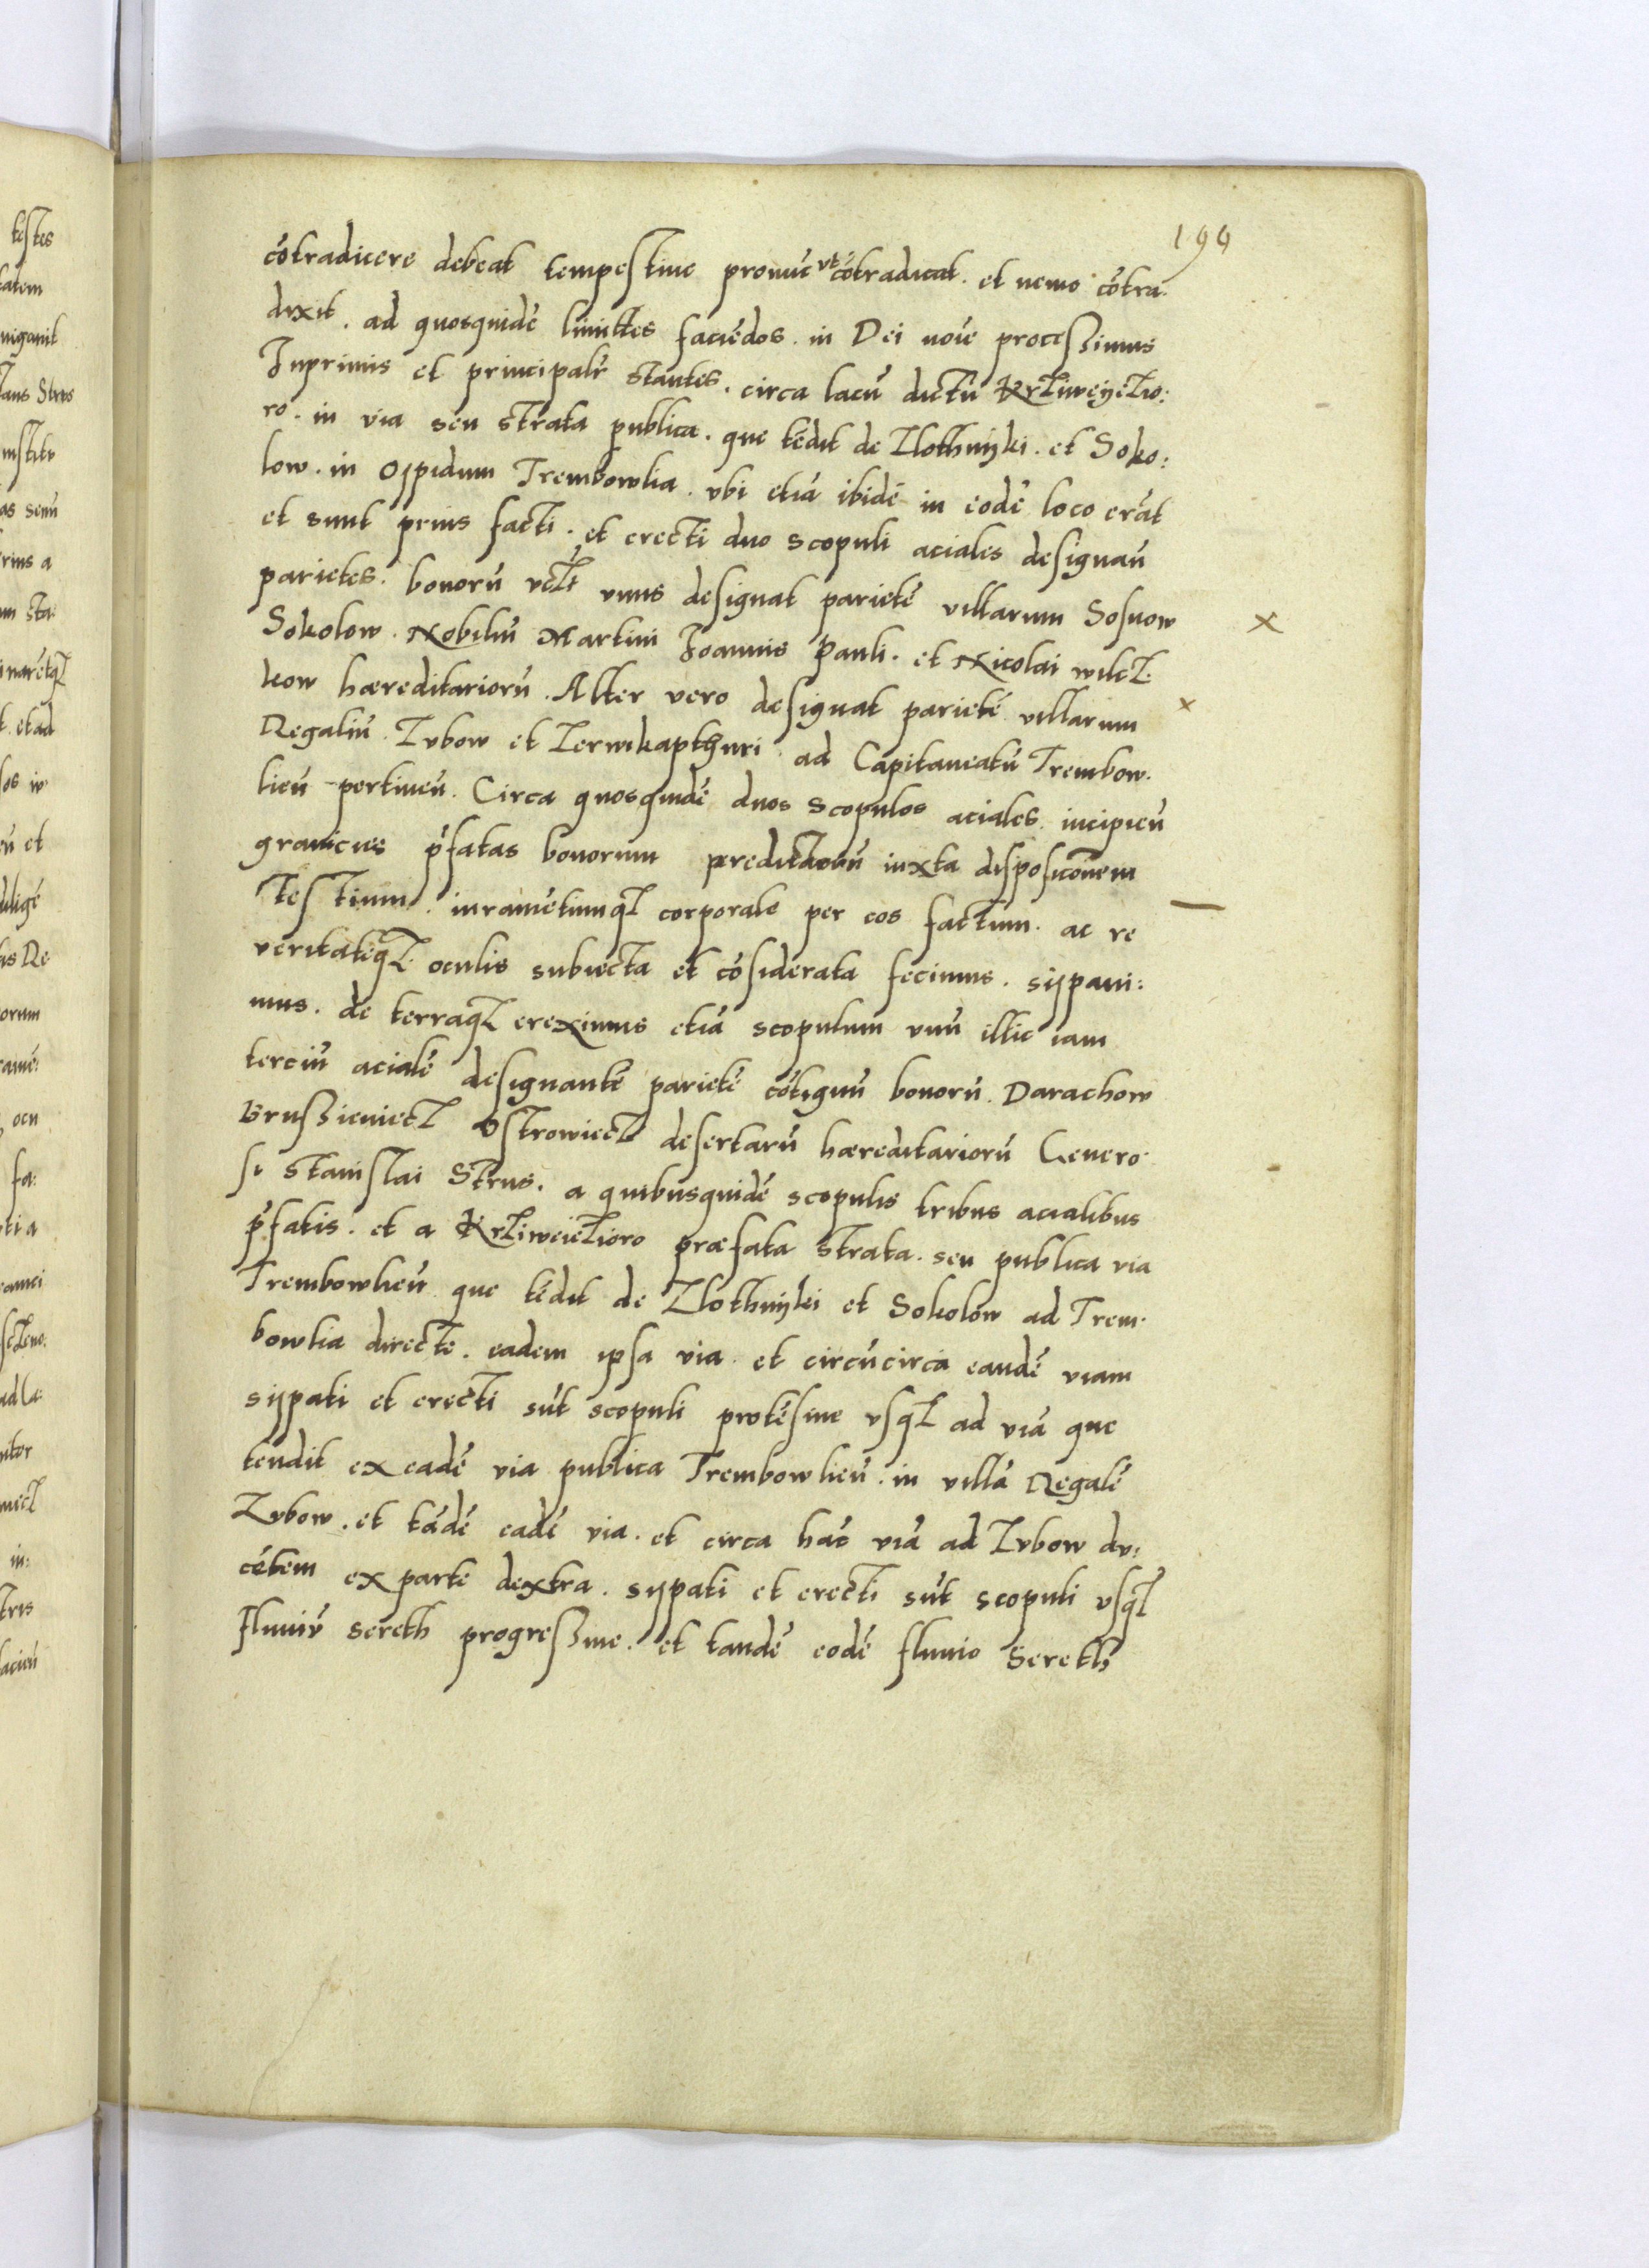 199
cōtradicere debeat tempestiue pronūc vt cōtradicat. et nemo cōtra.
dixit. ad quosquidē limittes faciēdos. in Dei noīe processimus
Inprimis et principalr̄ stantes. circa lacū dictū Krziweyezio:
ro. in via seu strata publica. que tēdit de Zlothnyki. et Soko:
low. in oppidum Trembowlia. vbi etiā ibidē in eodē loco erāt
et sunt prius facti. et erecti duo scopuli aciales designan̄
parietes. bonorū vczt vnus designat parietē villarum Sosnow
Sokolow. Nobiliū Martini Joannis Pauli. et Nicolai wilcz.
kow hæreditariorū. Alter vero designat parietē villarum
Regaliū. Zvbow et Zerwikapthuri ad Capitaneatū Trembow.
lien̄ pertinen̄. Circa quosquidē duos scopulos aciales incipien̄
granicies p̄fatas bonorum preditactorū iuxta disposicōnem
Testium. iuramētumqz corporale per eos factum. ac re
veritatēqz oculis subiecta et cōsiderata fecimus. sijpaui:
mus. de terraqz ereximus etiā scopulum vnū illic iam
terciū acialē designantē parietē cōtiguū bonorū. Darachow
Brussieniecz Ostrowiecz desertarū hæreditariorū Genero.
si Stanislai Strus. a quibusquidē scopulis tribus acialibus
p̄fatis. et a Krziweiezioro præfata strata. seu publica via
Trembowlien̄ que tēdit de Zlothnyki et Sokolow ad Trem.
bowlia directe. eadem ipsa via. et circūcirca eandē viam
sijpati et erecti sūt scopuli protēsiue vsqz ad viā que
tendit ex eadē via publica Trembowlien̄. in villā Regalē
Zvbow. et tādē eadē via. et circa hāc viā ad Zvbow du:
cētem ex parte dextra. sijpati et erecti sūt scopuli vsqz
fluuiū Sereth progressiue. et tandē eodē fluuio Sereth